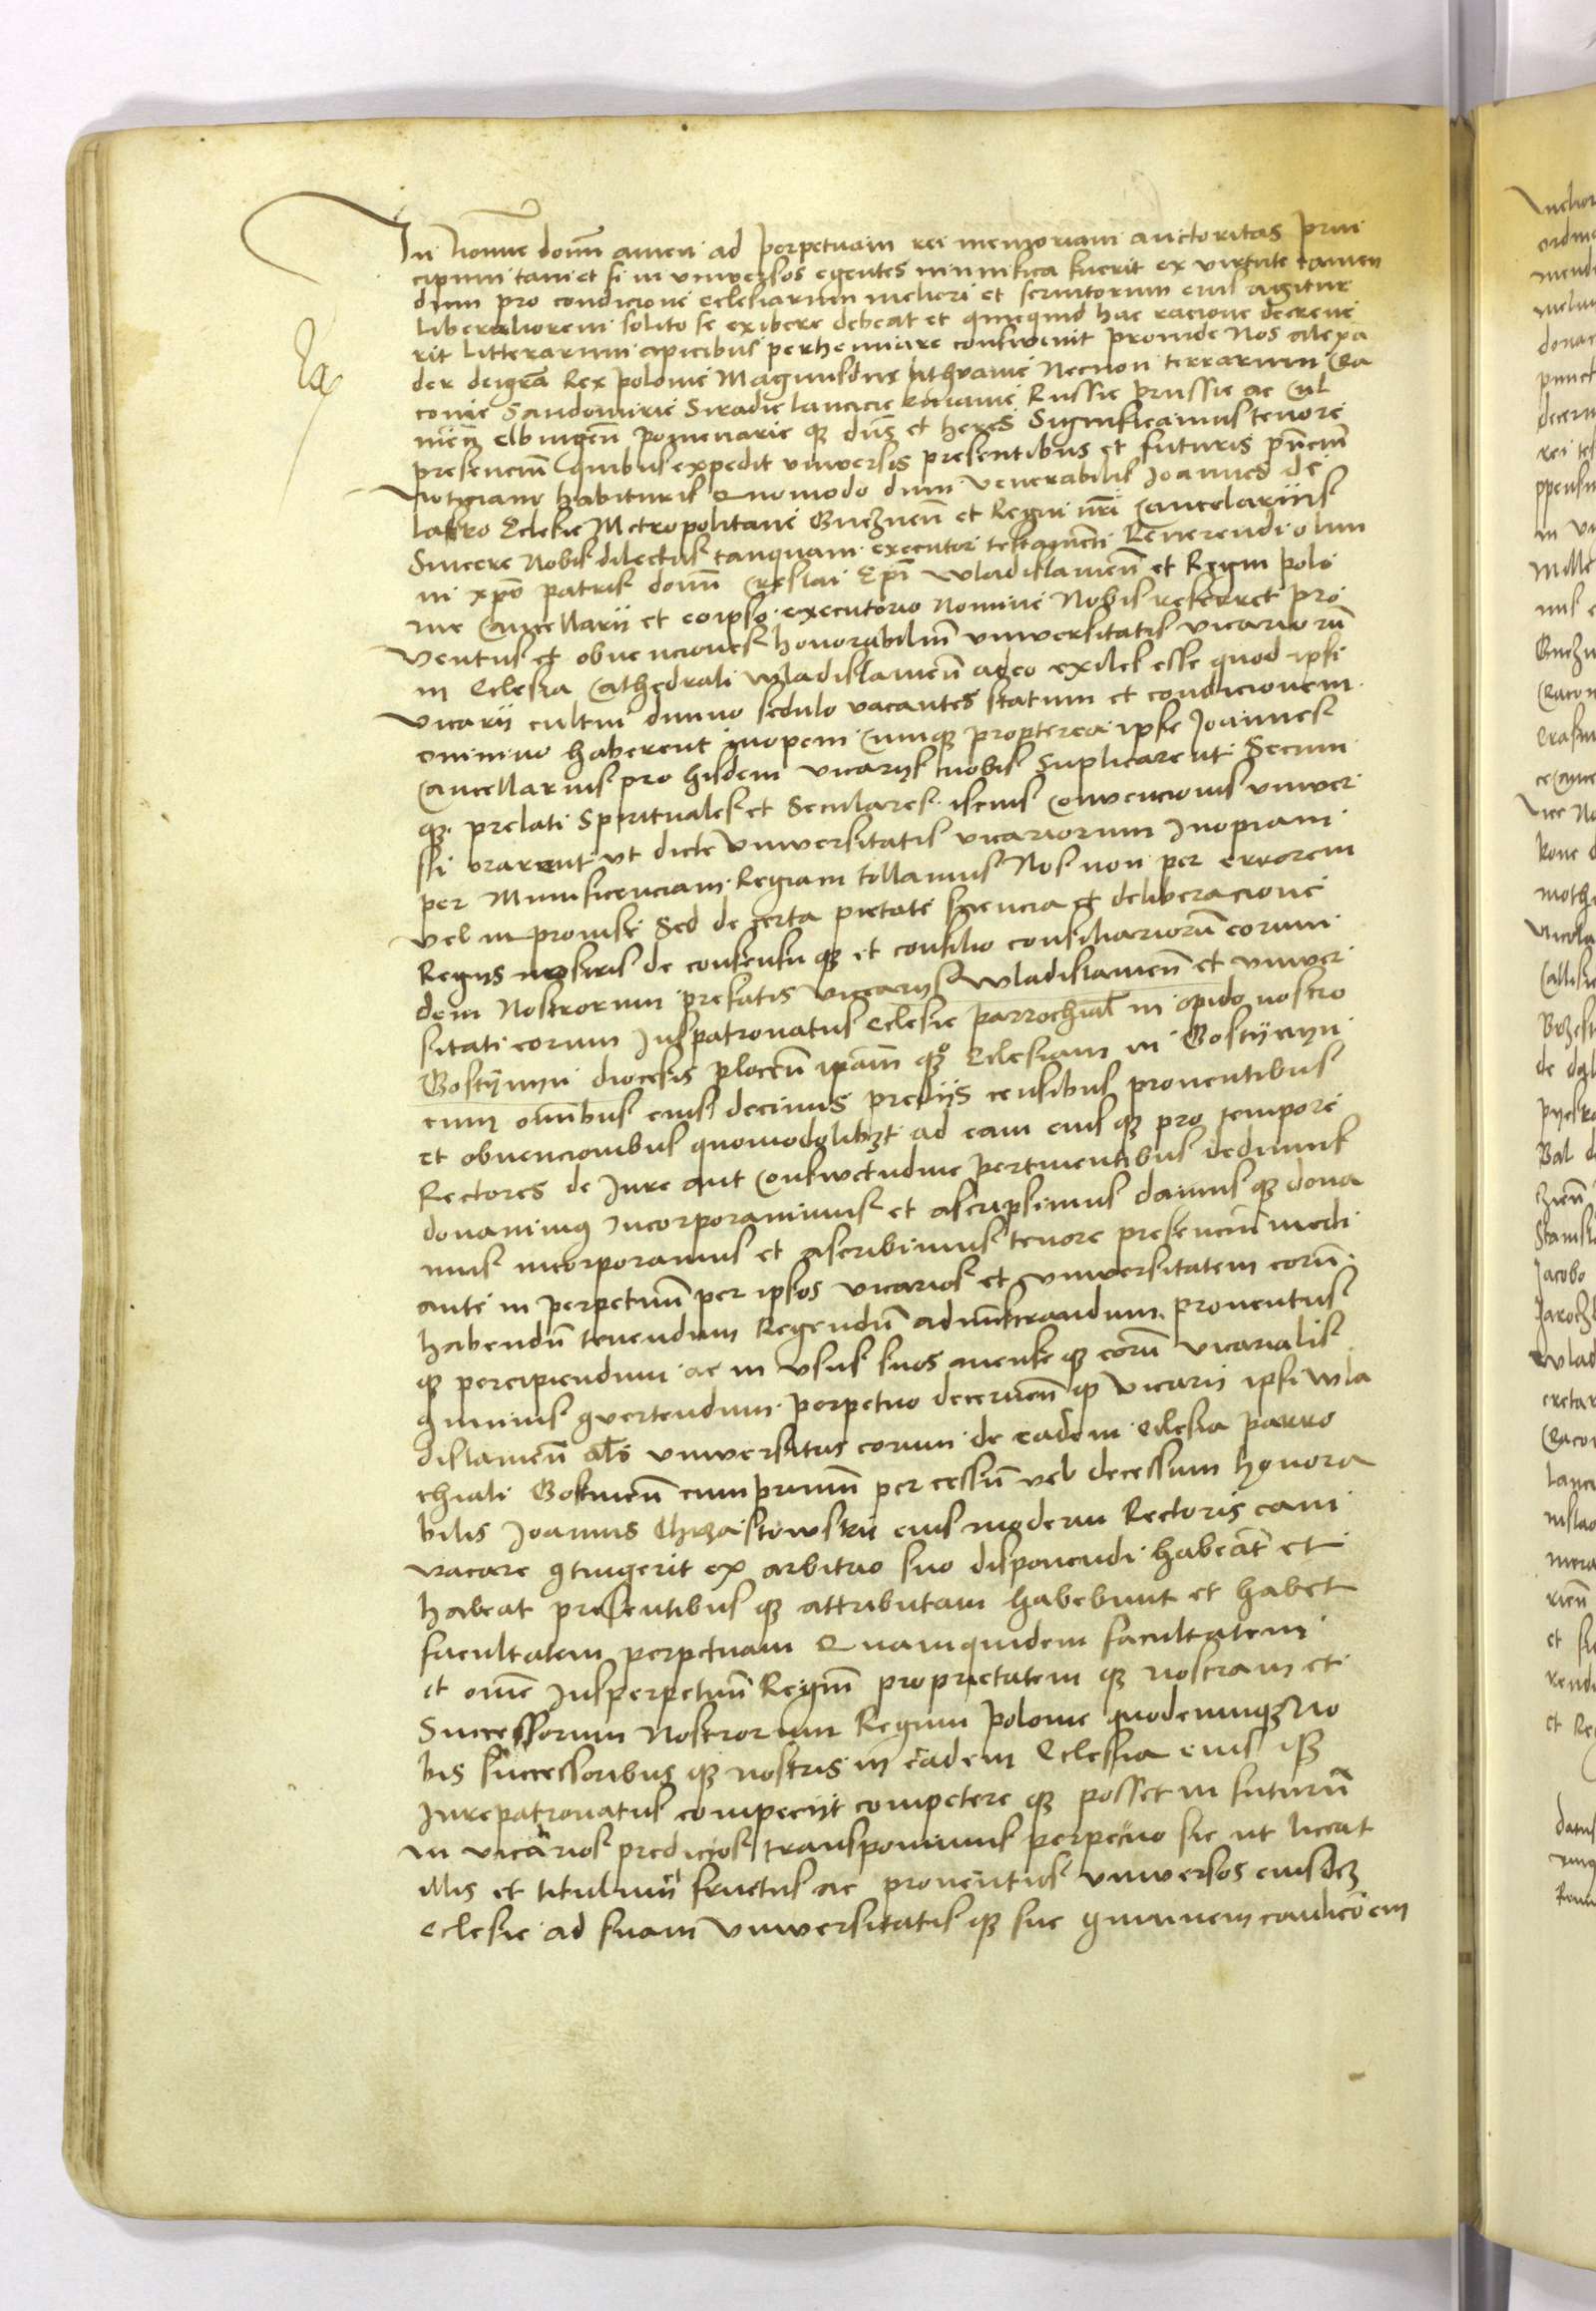 In Nomine domī amen ad perpetuam rei memoriam auctoritas prin
cipum tamet si in universos egentes munifica fuerit ex virtute tamen
dum pro condicione eclesiarum meliori et servitorum eius agitur
liberaliorem solito se exibere debeat et quicquid hac racione decreve
rit litterarum apicibus perhenniare consuevit proinde Nos alexā
der dei gra Rex polonie Magnus dux lithvanie Necnon terrarum Cra
covie Sandomirie Siradie lancicie Kuiavie Russie prussie ac Cul
meñ elbingeñ pomeranie qz dns et heres Significamus tenore
presencium quibus expedit universis presentibus et futuris pñcium
Noticiam habituris Quomodo dum venerabilis Joannes de
lasko Eclesie Metropolitane Gneznenn et Regni nri Cancelarius
Sincere Nobis dilectus tanquam executor testamenti Reverendi olim
in xpo patris domi Creslai Epi wladislavienn et Regni polo
nie Cancellarii et eo ipso executorio Nomine Nobis referret pro
ventus et obvenciones honorabilium universitatis vicariorū
in Eclesia Cathedrali wladislavienn adeo exiles esse quod ipsi
vicarii cultui divino sedulo vacantes statum et condicionem
omnino haberent inopem Cumqz propterea ipse Joannes
Cancellarius pro hisdem vicarys nobis suplicarent Secum
qz prelati Spirituales et Seculares isenis Convencionis univer
ssi orarent ut dicte Universitatis vicariorum Inopiam
per Munificenciam Regiam tollamus Nos non per errorem
vel inprovise Sed de certa pietate sciencia et deliberacione
Regys nostris de consensu qz et consilio consiliariorū eorum
dem Nostrorum prefatis vicarys wladislavienn et univer
sitati eorum Juspatronatus eclesie parrochial in opido nostro
Gostynyn diocesis plocenn ipam qz Eclesiam in Gostynyn
cum omnibus eius decimis predys censibus proventibus
et obvencionibus quomodolibet ad eam eius qz pro tempore
Rectores de Jure aut Consuetudine pertinentibus dedimus
donavimus Incorporavimus et ascripsimus damus qz dona
mus incorporamus et ascribimus tenore presencium medi
ante in perpetuum per ipsos vicarios et universitatem eorū
habendū tenendum Regendū administrandum proventus
qz percipiendum ac in usus suos mense qz eorū vicarialis
9munis 9vertendum perpetuo decernenn qz vicarii ipsi wla
dislavienn als universitas eorum de eadem eclesia parro
chiali Gostinenn cum primum per cessum vel decessum honora
bilis Joannis Chrzastowskii eius moderni Rectoris eam
vacare 9tingerit ex arbitrio suo disponendi habeāt et
habeat presentibus qz attributam habebunt et habet
facultatem perpetuam Quamquidem facultatem
et omne Jusperpetuum Regium proprietatem qz nostram et
Successorum Nostrorum Regum polonie quodcunqz No
bis successoribus qz nostris in eadem Eclesia eius qz
Jurepatronatus compecyt competere qz posset in futurū
in vicarios predictos transponimus perpetuo sic ut liceat
illis et titulum et fructus ac proventus universos eiusdez
eclesie ad suam Universitatis qz sue 9munem condicōem